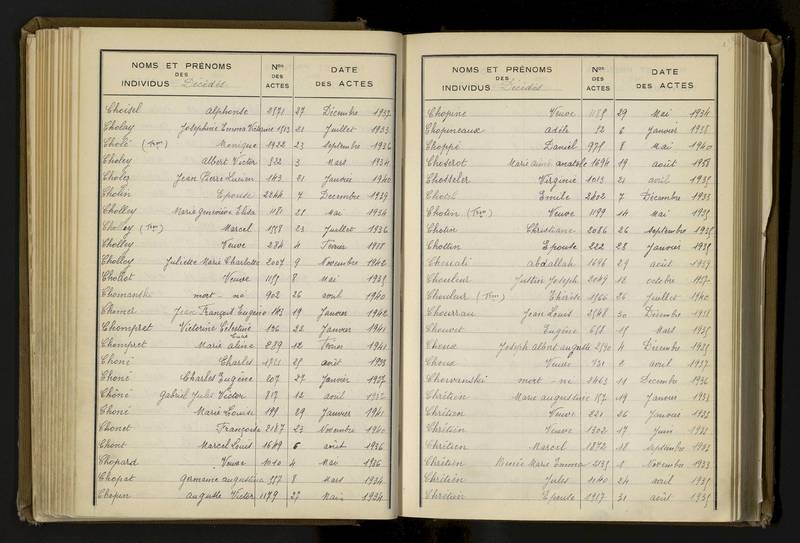 NOMS ET PRÉNOMS DES INDIVIDUS Décédés Nos DES ACTES DATE DES ACTES
Choisel Alphonse 27 Décembre 1937
Cholay Joséphine Emma 21 Juillet 1933
Cholé (Tran) Monique 1922 23 Septembre 1936
Choley Albert Victor 532 3 Mars 1934
Choley Jean Pierre Lucien 143 21 Janvier 1940
Cholin Epouse 2244 7 Decembre 1939
Cholley Marie geneviève Elisa 1181 21 Mai 1934
Cholley (Tran) Marcel 1558 23 Juillet 1936
Cholley Veuve 284 4 Février 1938
Cholley Juliette Marie Charlotte 2007 9 Novembre 1942
Chollot Veuve 1159 8 Mai 1935
Chomanski mort-né 902 26 avril 1940
Chomer Jean François Eugène 143 19 Janvier 1942
Chompret Victorine Celestine 196 22 Janvier 1941
Chompret Marie Aline 289 12 Février 1941
Choné Charles 25 août 1933
Choné Charles Eugène 207 27 Janvier 1937
Chôné Gabriel Jules Victor 817 12 avril 1932
Choné Marie Louise 199 29 Janvier 1941
Chonet Françoise 2187 23 Novembre 1940
Chont Marcel Louis 1649 6 août 1936
Chopard Veuve 1010 4 Mai 1936
Chopat germaine augustina 557 8 Mars 1934
Chopin auguste Victor 1179 27 Mai 1934
NOMS ET PRÉNOMS DES INDIVIDUS Décédés Nos DES ACTES DATE DES ACTES
Chopine Veuve 1189 29 Mai 1934
Chopineaux Adèle 52 6 Janvier 1938
Choppé Daniel 978 8 Mai 1940
Choserot Marie aimé anatole 1694 19 août 1938
Chosseler Virginie 1013 21 avril 1935
Chotel Emile 2402 7 Décembre 1933
Chotin (Tran) Veuve 1199 14 Mai 1935
Chotin Christiane 2086 26 Septembre 1935
Chottin Epouse 222 28 Janvier 1935
abdallah 1696 29 août 1939
Chouleur Justin Joseph 2049 12 octobre 1937
Chouleur (Tran) 1566 26 Juillet 1940
Chourrau Jean Louis 2548 30 Décembre 1938
Chouvet Eugène 658 15 Mars 1935
Choux Joseph Albert auguste 2590 4 Décembre 1935
Choux Veuve 931 2 avril 1937
Chowanski mort-né 2463 11 Decembre 1936
Chrétien Marie augustine 157 19 Janvier 1933
Chrétien Veuve 221 26 Janvier 1935
Chrétien Veuve 1302 17 Juin 1932
Chrétien Marcel 1872 18 Septembre 1932
Chrétien Renée Marie Emma 2135 8 Novembre 1933
Chrétien Jules 1140 24 avril 1935
Chrétien Epouse 1917 31 août 1935